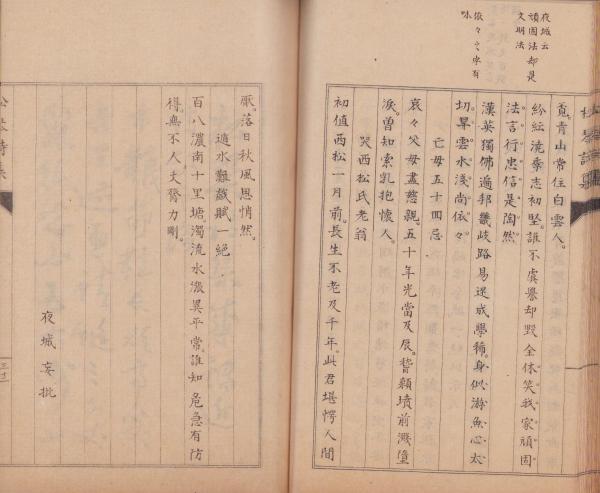 夜城云
頑固法却是
文明法
依々之字有
味
覓。青山常住白雲人。
紛紜流季志初堅。誰不虞譽却毀全。休笑我家頑固
法。言行忠信是陶然。
漢英獨佛遍邦畿。岐路易迷成學稀。身似游魚心太
切。旱雲水淺尚依々。
亡母五十回忌
哀々父母盡慈親。五十年光當及辰。皆顙墳前濺墮
淚。曽知索乳抱懷人。
哭西松氏老翁
初值西松一月前。長生不老及千年。此君堪愕人間
厭。落日秋風思悄然。
遭水難戲賦一絕
百八濃南十里塘。濁流水激異平常。誰知危急有防
得。無不人丈膂力剛。
夜城妄批